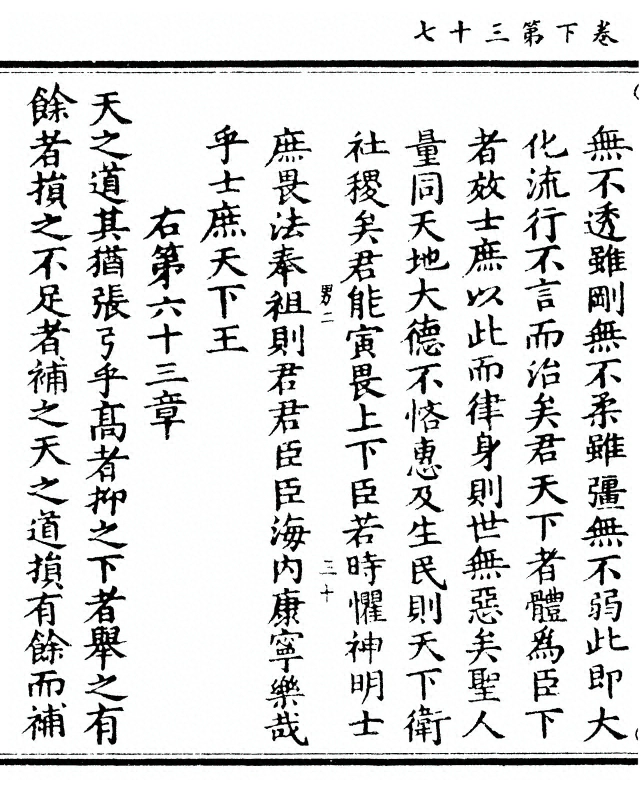 卷下第三十七
無不透雖剛無不柔雖彊無不弱此即大
化流行不言而治矣君天下者體爲臣下
者效士庶以此而律身則世無惡矣聖人
量同天地大德不悋惠及生民則天下衛
社稷矣君能寅畏上下臣若時懼神明士
男二 三十
庶畏法奉祖則君君臣臣海内康寧樂哉
乎士庶天下王
右第六十三章
天之道其猶張弓乎髙者抑之下者舉之有
餘者損之不足者補之天之道損有餘而補